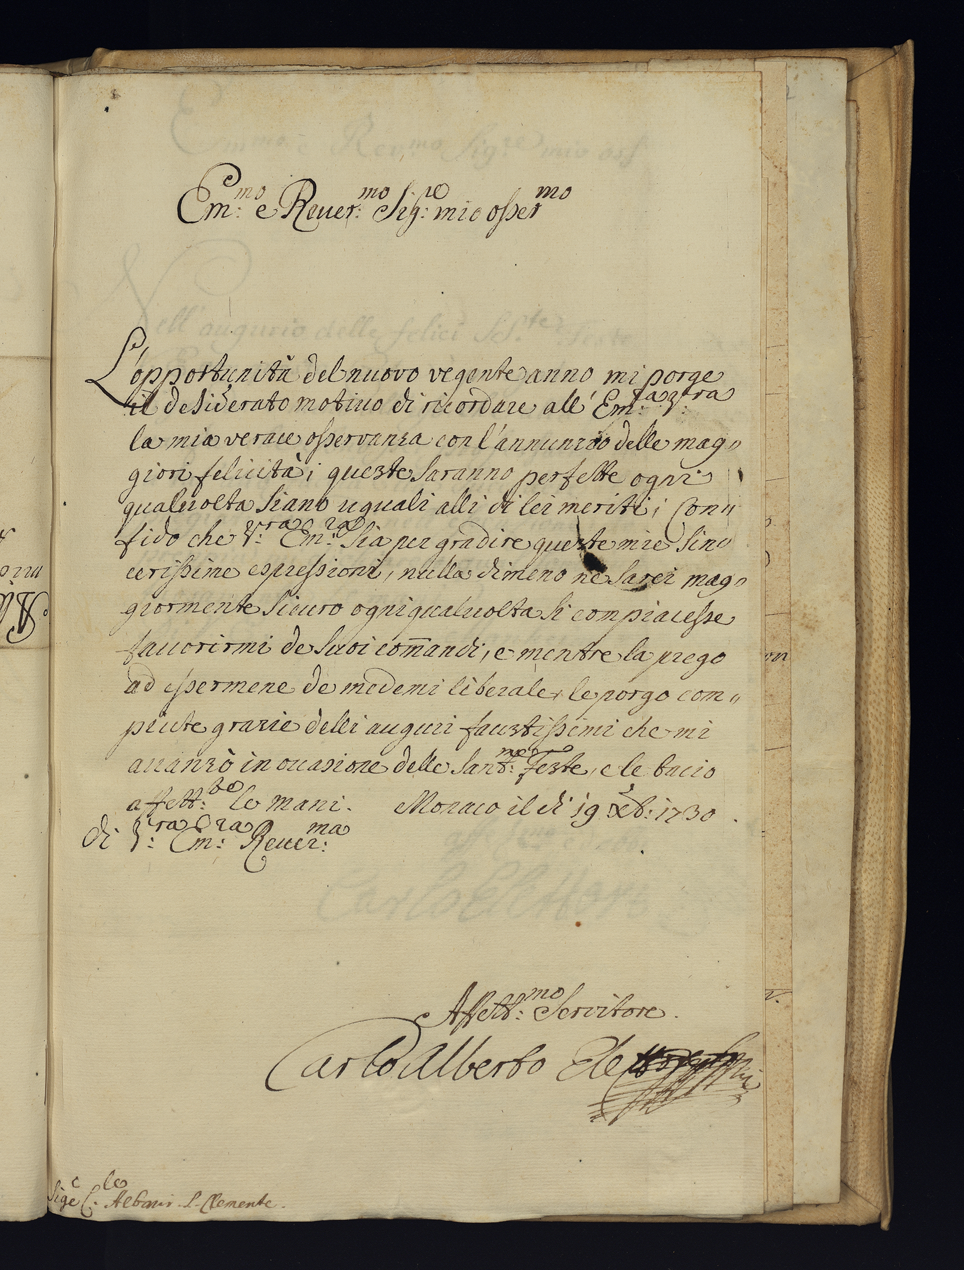 Em:mo e Reuer:mo Sig:re mio osser:mo
L'opportunità del nuovo vegente anno mi porge
il desiderato motiuo di ricordare all' Em:za V:ra
la mia verace osseruanza con l'annunzio delle mag„
giori felicità; queste saranno perfette ogni
qualuolta siano uguali alli di lei meriti; Con„
fido che V:ra Em:za sia per gradire queste mie sin„
cerissime espressioni, nulla dimeno ne sarei mag„
giormente sicuro ogniqualuolta si compiacesse
fauorirmi de suoi com̄andi, e mentre la prego
ad essermene de medemi liberale, le porgo com„
piute grazie delli auguri faustissimi che mi
auanzò in occasione delle San:me Feste, e le bacio
affett:te le mani. Monaco il di 19 Xb: 1730.
di V:ra Em:za Reuer:ma
Affett:mo Servitore.
Carlo Alberto Elettore
Sig:e C:le Albani S. Clemente.